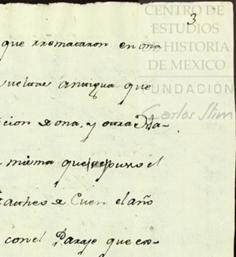 3
CENTRO DE
ESTUDIOS
DE HISTORIA
DE MEXICO
FUNDACIÓN
Carlos Slim
que remataron en una
antigua que
cion de ona, y otra
misma que puso el
de Cuen el año
con el Paraje que es-